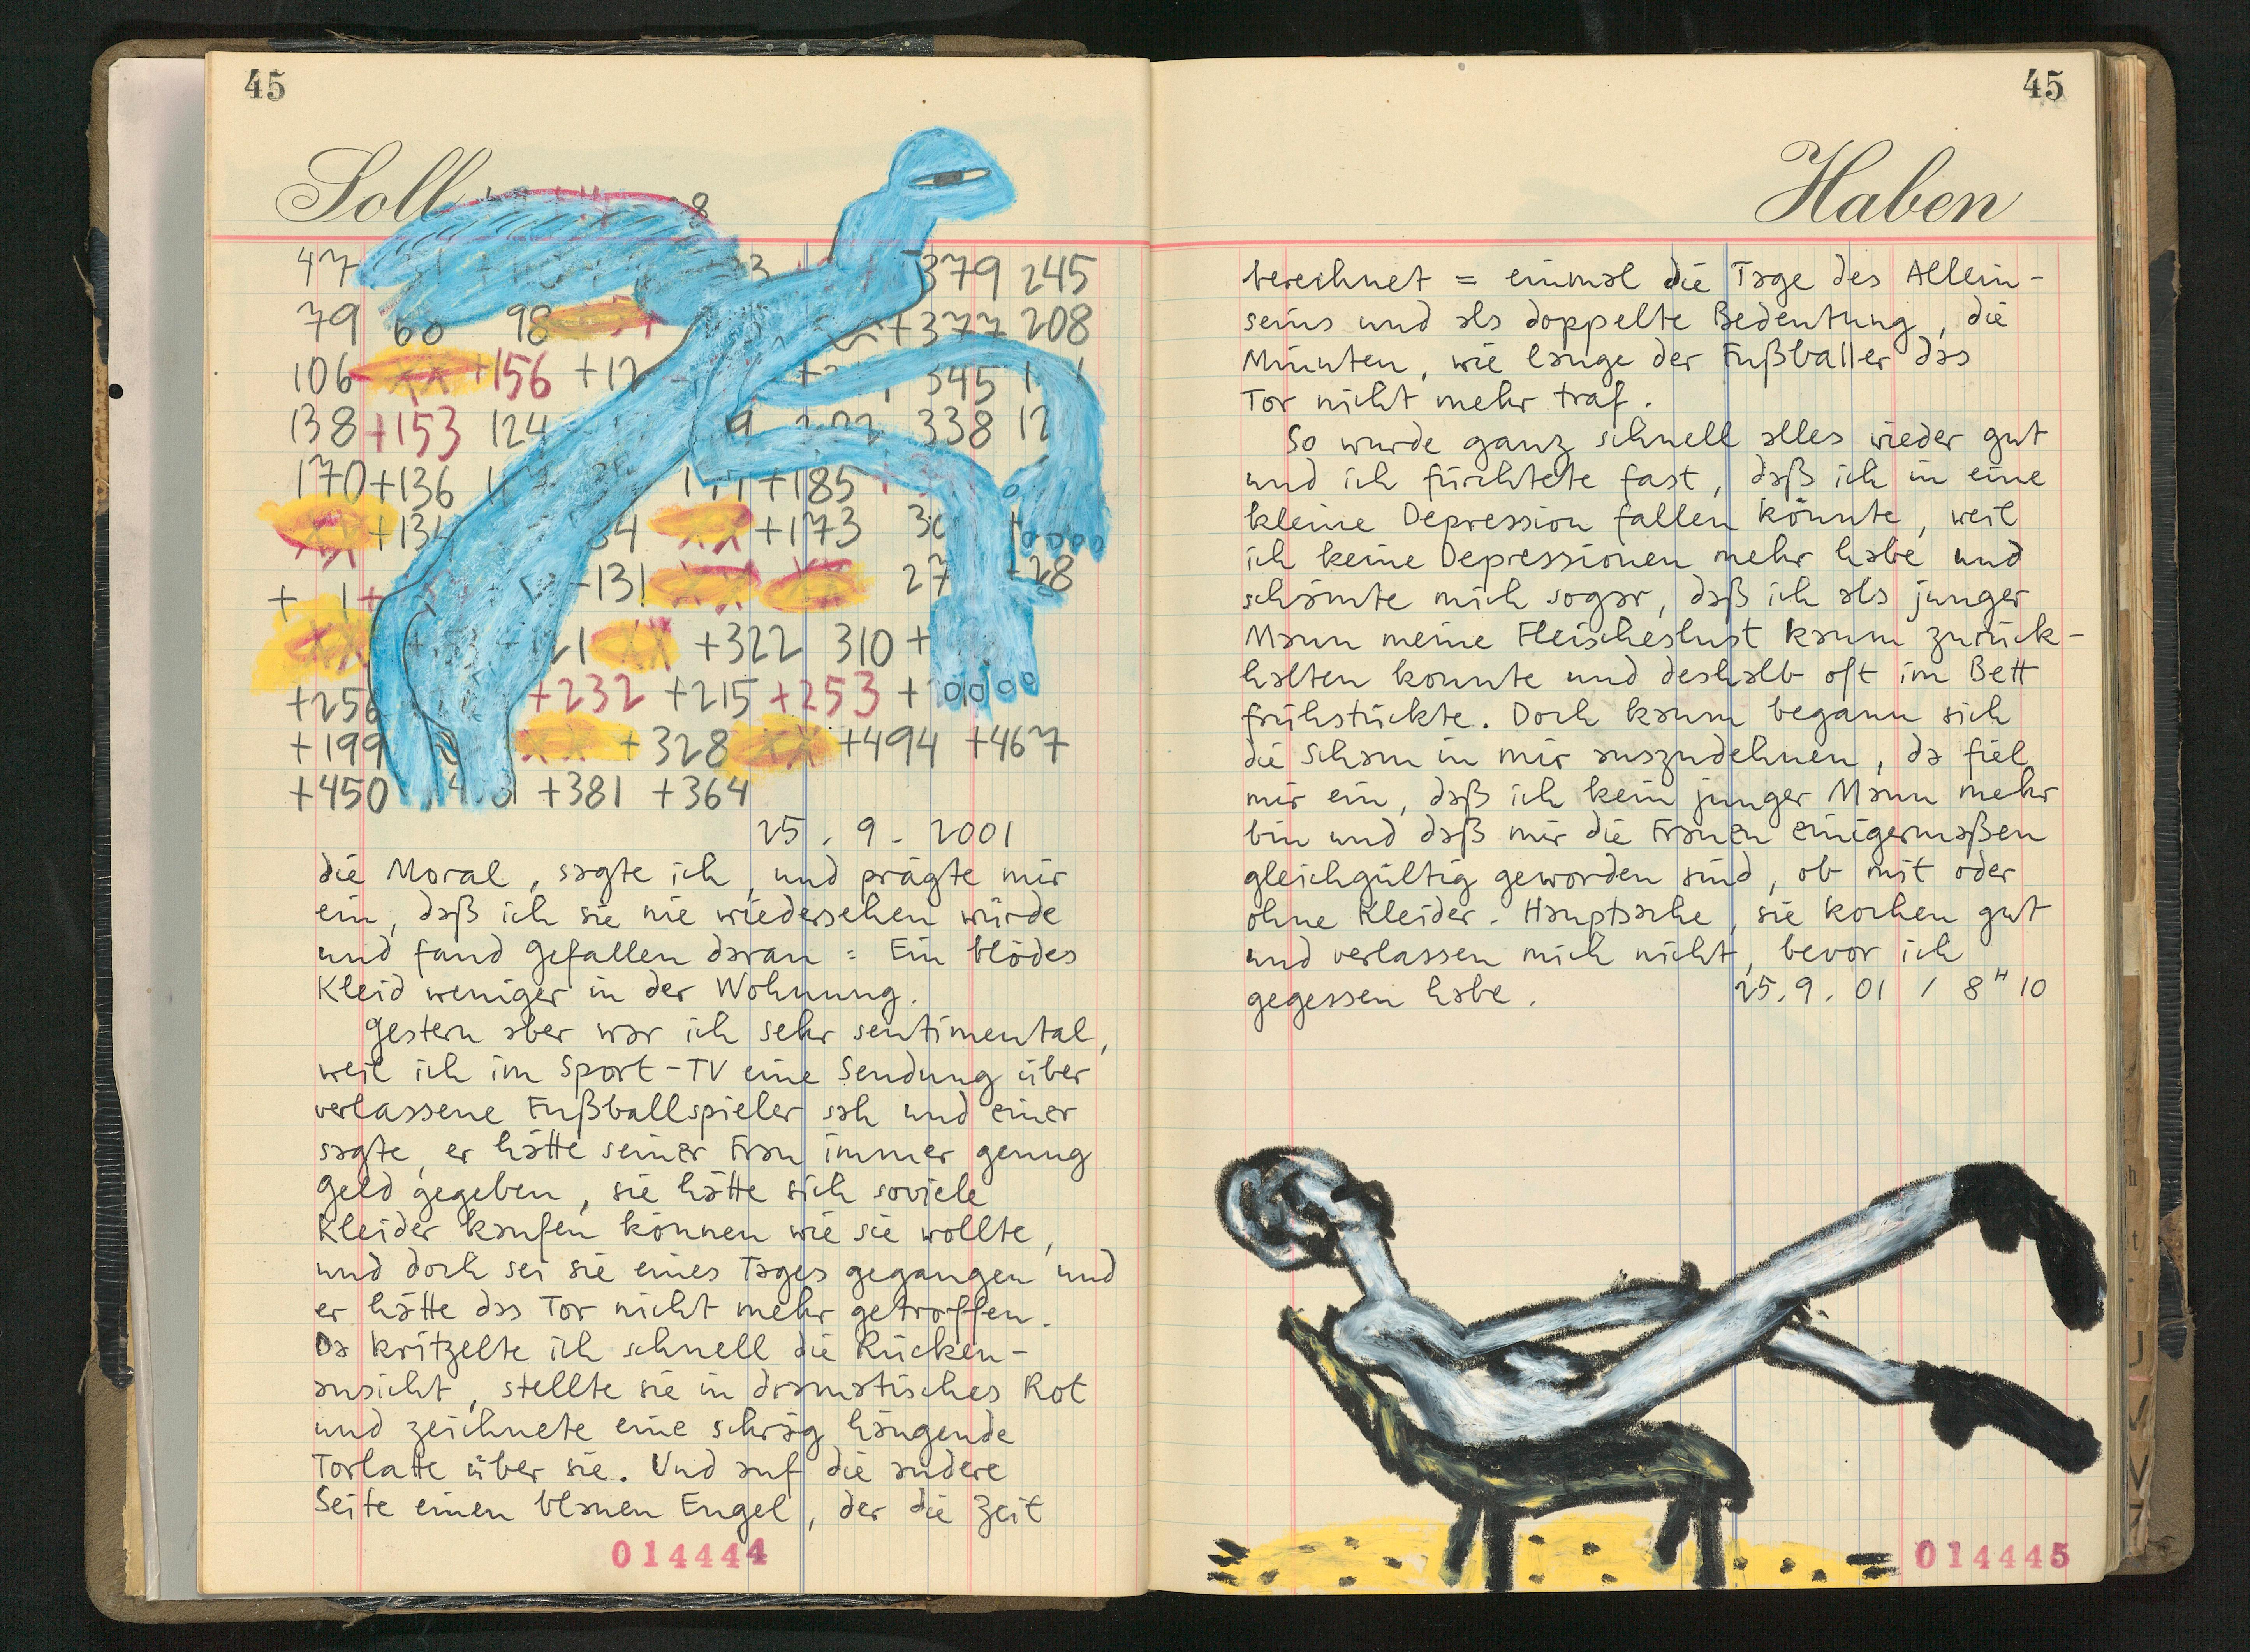 45
Soll
8
47 3 379 245
79 60 98 +377 208
106 XX +156 +12 345 1
138 +153 124 9 202 338 12
170 +136 +185
XX +134 34 XX +173 30
+ 1 + -131 XX XX 27 -28
XX 21 XX +322 310 +
+256 +232 +215 +253 +
+199 XX +328 XX +494 +467
+450 +381 +364
25. 9. 2001
die Moral, sagte ich, und prägte mir
ein, daß ich sie nie wiedersehen würde
und fand Gefallen daran: Ein blödes
Kleid weniger in der Wohnung.
Gestern aber war ich sehr sentimental,
weil ich im Sport-TV eine Sendung über
verlassene Fußballspieler sah und einer
sagte, er hätte seiner Frau immer genug
Geld gegeben, sie hätte sich soviele
Kleider kaufen können wie sie wollte,
und doch sei sie eines Tages gegangen und
er hätte das Tor nicht mehr getroffen.
Da kritzelte ich schnell die Rücken-
ansicht, stellte sie in dramatisches Rot
und zeichnete eine schräg hängende
Torlatte über sie. Und auf die andere
Seite einen blauen Engel, der die Zeit
014444
45
Haben
berechnet = einmal die Tage des Allein-
seins und als doppelte Bedeutung, die
Minuten, wie lange der Fußballer das
Tor nicht mehr traf.
So wurde ganz schnell alles wieder gut
und ich fürchtete fast, daß ich in eine
kleine Depression fallen könnte, weil
ich keine Depressionen mehr habe und
schämte mich sogar, daß ich als junger
Mann meine Fleischeslust kaum zurück-
halten konnte und deshalb oft im Bett
frühstückte. Doch kaum begann sich
die Scham in mir auszudehnen, da fiel
mir ein, daß ich kein junger Mann mehr
bin und daß mir die Frauen einigermaßen
gleichgültig geworden sind, ob mit oder
ohne Kleider. Hauptsache, sie kochen gut
und verlassen mich nicht, bevor ich
gegessen habe. 25. 9. 01 / 8 H 10
014445